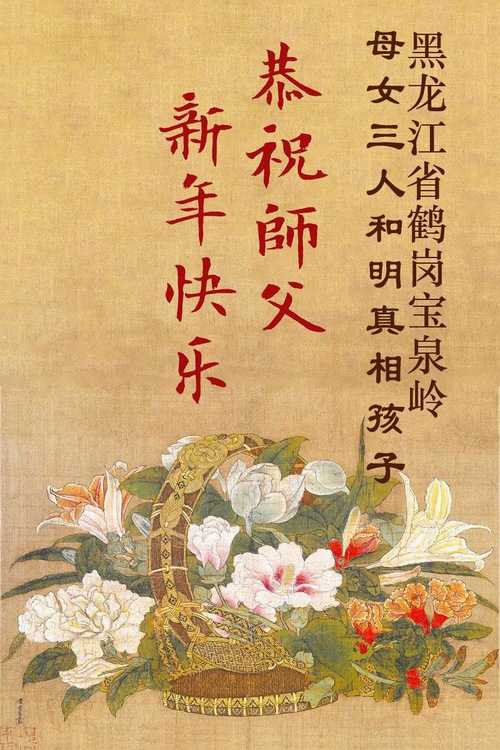 黑龙江省鹤岗宝泉岭
母女三人和明真相孩子
恭祝師父
新年快乐